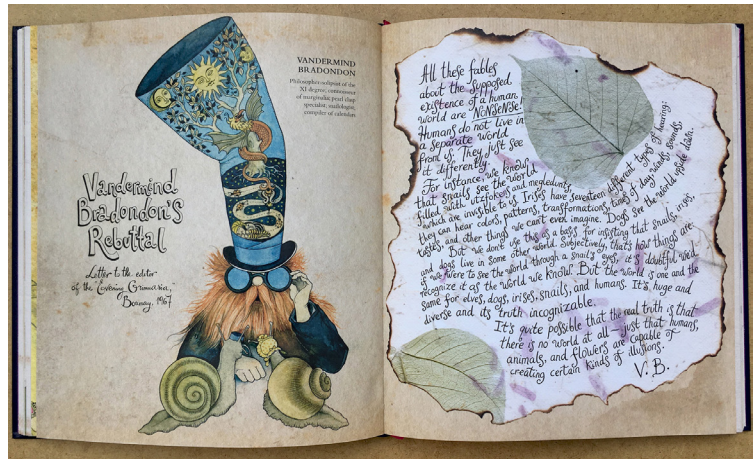 VANDERMIND
BRADONDON
Philosopher-solipsist of the
XI degree, connoisseur
of marginalia, pearl chap
specialist, snailologist,
compiler of calendars
Vandermind
Bradondon's
Rebuttal
Letter to the editor
of the Evening Grimuaria,
1967
All these fables
about the supposed
existence of a human
world are NONSENSE!
Humans do not live in
a separate world
from us. They just see
it differently.
For instance, we know
that snails see the world
filled with utzfokens and negledunts,
which are invisible to us. Irises have seventeen different types of hearing:
they can hear colors, patterns, transformations, times of day, winds, sounds,
tastes, and other things we can't even imagine. Dogs see the world upside down.
But we don't use this as a basis for insisting that snails, irises,
and dogs live in some other world. Subjectively, that's how things are:
if we were to see the world through a snail's eyes, it's doubtful we'd
recognize it as the world we know. But the world is one and the
same for elves, dogs, irises, snails, and humans. It's huge and
diverse and its truth incognizable.
It's quite possible that the real truth is that
there is no world at all – just that humans,
animals, and flowers are capable of
creating certain kinds of illusions.
V. B.